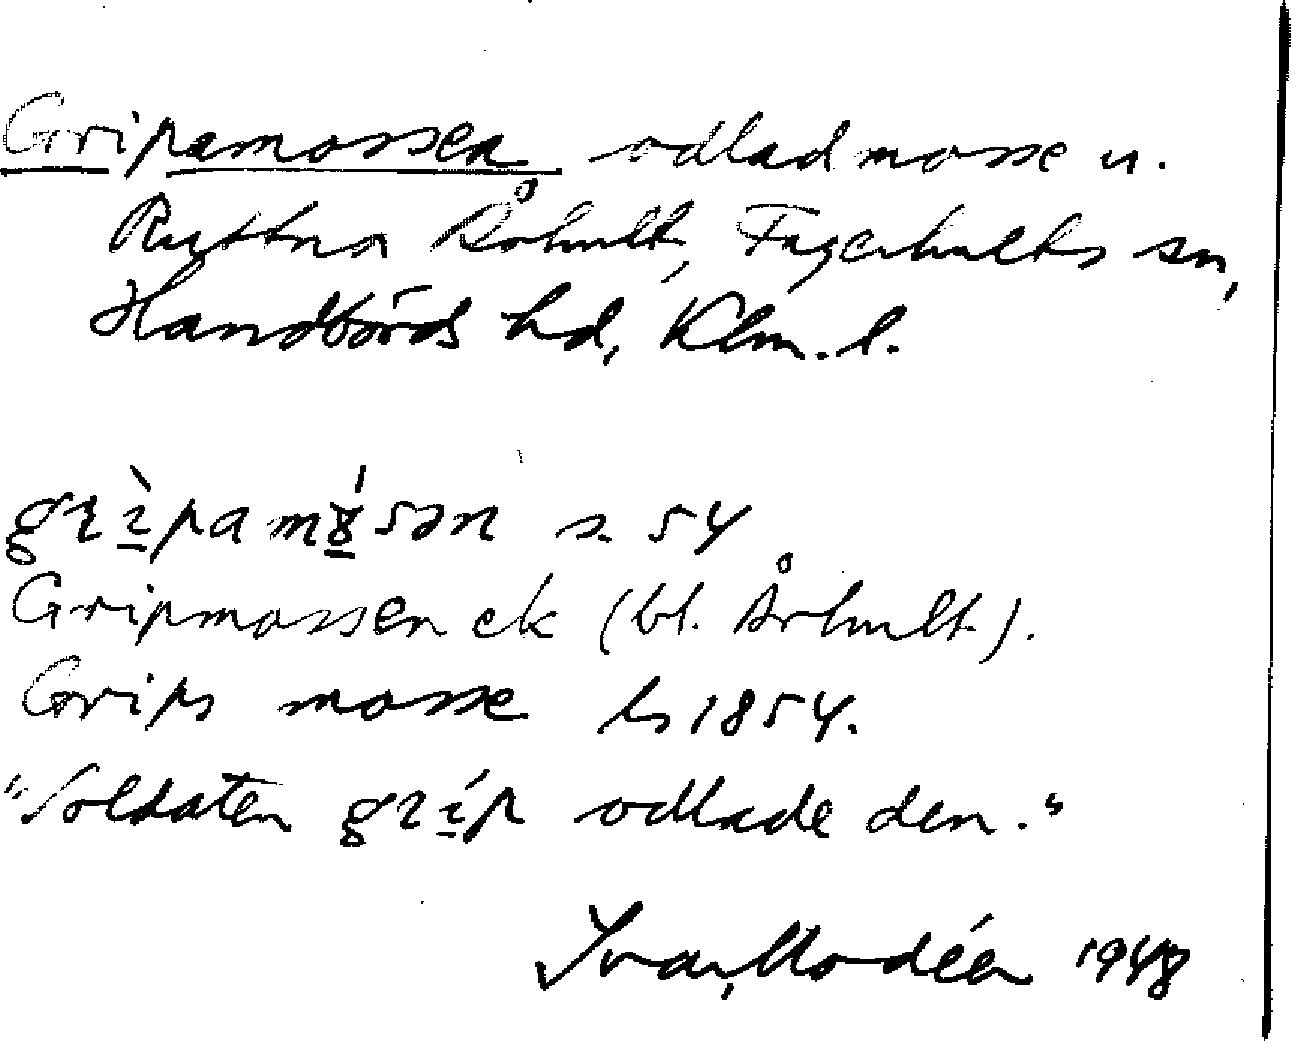 Gripamossen odlad mosse u.
Ruttna Århult, Fagerhults sn,
Handbörds hd, Klm. l.
grìpamósən s. 54
Gripmossen ek (bl. Århult).
Grips mosse ls 1854.
"Soldaten gríp odlade den."
Ivar Modéer 1948